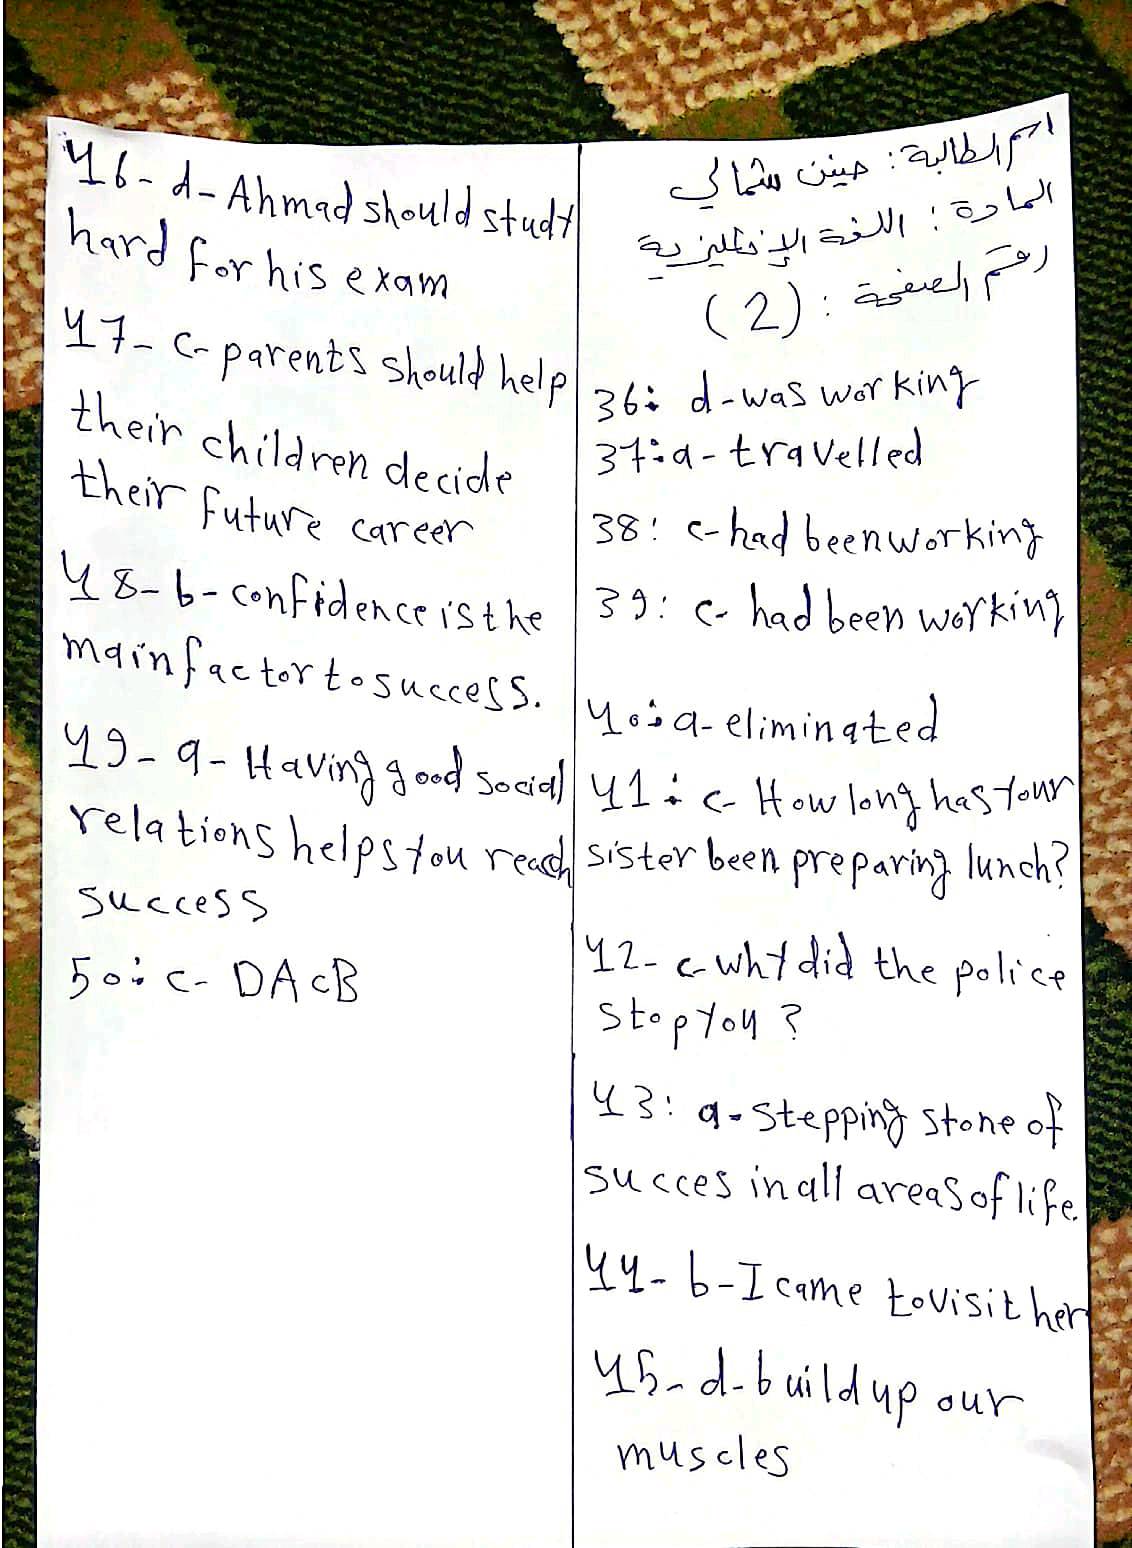 اسم الطالبة: حنين شمالي
المادة: اللغة الإنجليزية
رقم الصفحة: (2)
36: d-was working
37: a-travelled
38: c-had been working
39: c- had been working
40: a-eliminated
41: c- How long has your
sister been preparing lunch?
42- c-why did the police
stop you?
43: a-stepping stone of
succes in all areas of life.
44- b-I came to visit her
45- d-build up our
muscles
46- d-Ahmad should study
hard for his exam
47- c-parents should help
their children decide
their future career
48-b-confidence is the
main factor to success.
49- a-Having good social
relations helps you reach
success
50: c- DAcB